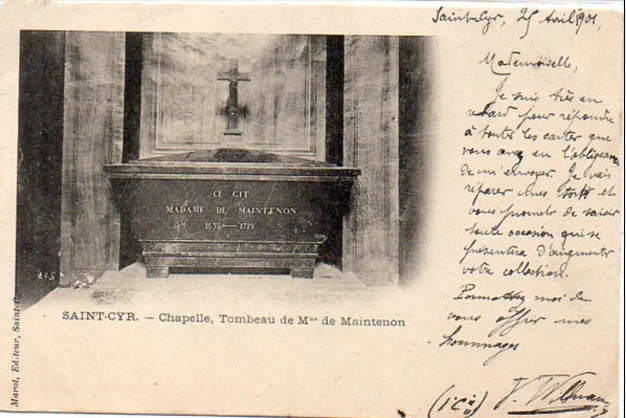 Saint-Cyr, 25 Avril 1901
Mademoiselle,
Je suis très en
retard pour répondre
à toutes les cartes que
vous avez eu l'obligeance
de m'envoyer. Je vais
réparer mes torts et
vous promets de saisir
toute occasion qui se
présentera d'augmenter
votre collection.
Permettez moi de
vous offrir mes
hommages
V.
CI GIT
MADAME DE MAINTENON
1635 — 1719
175
SAINT-CYR. — Chapelle, Tombeau de Mme de Maintenon
Marot, Editeur, Saint-Cyr